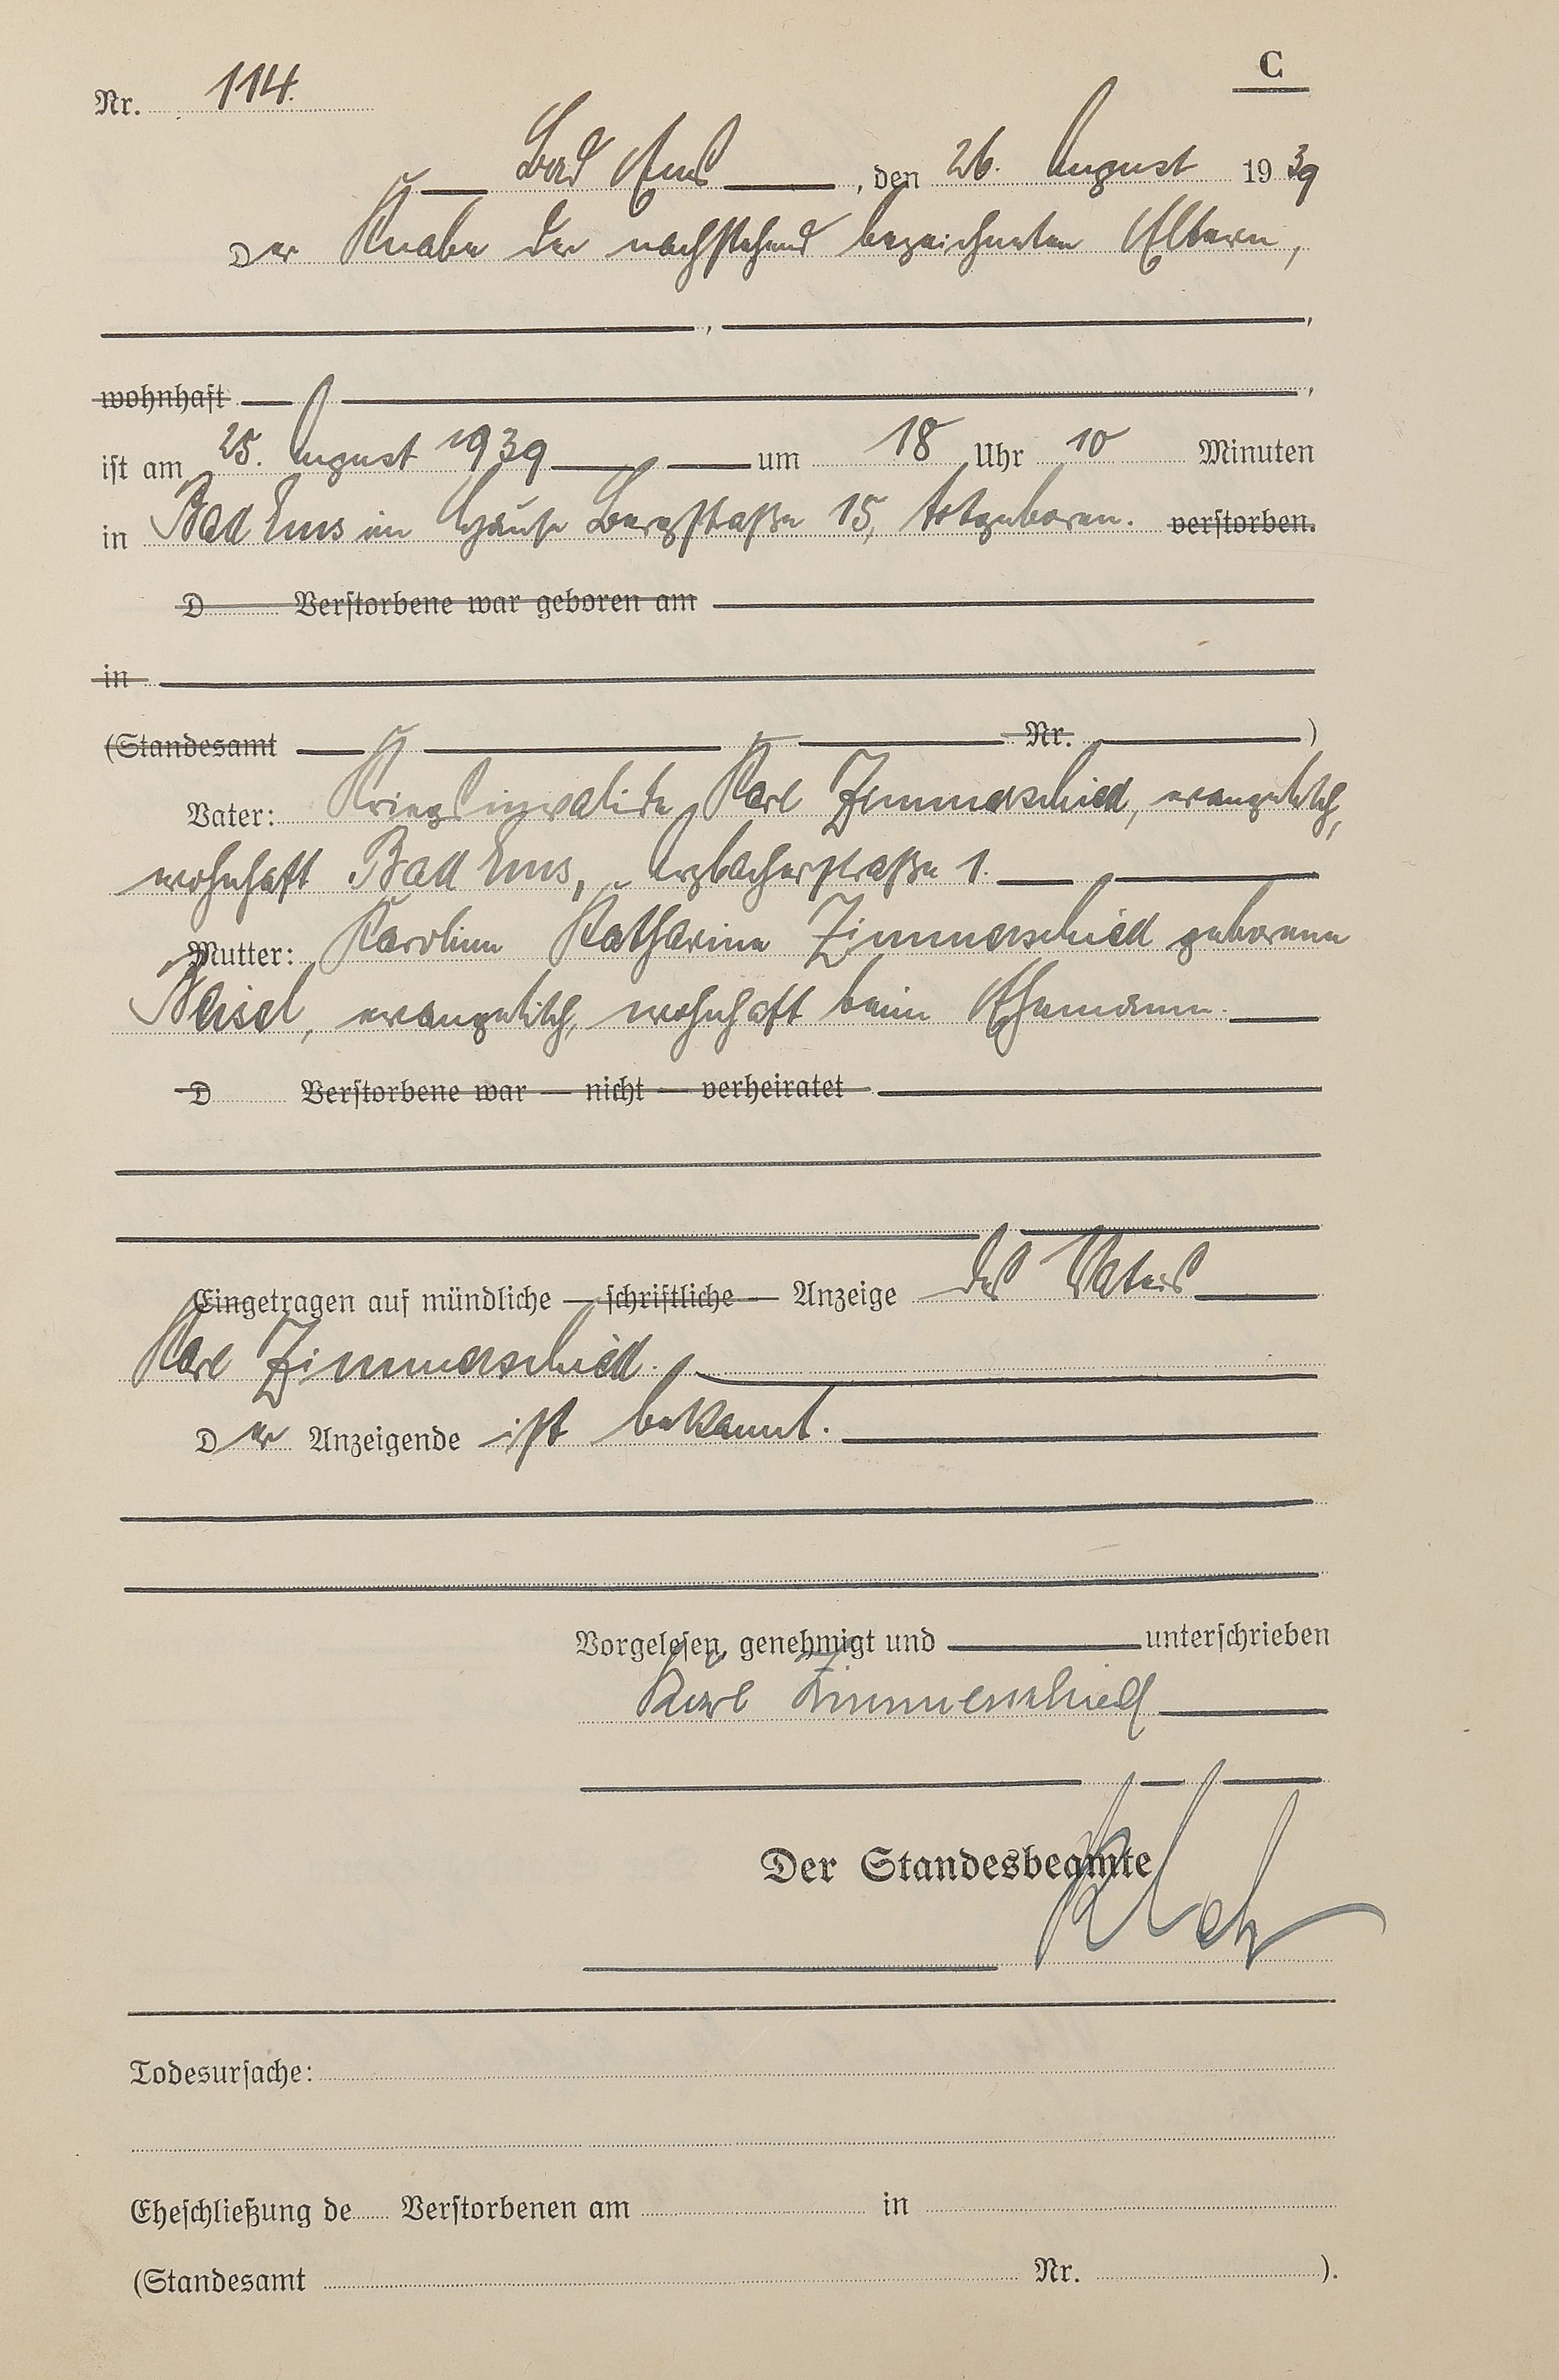 C
Nr. 114.
Bad Ems, den 26. August 1939
Der Knabe der nachstehend bezeichneten Eltern,
wohnhaft
ist am 25. August 1939 um 18 Uhr 10 Minuten
in Bad Ems im Hause Bergstraße 15, totgeboren. verstorben.
D Verstorbene war geboren am
in
(Standesamt Nr. )
Vater: Kriegsinvalide Karl Zimmerschied, evangelisch,
wohnhaft Bad Ems, Arzbacherstraße 1.
Mutter: Karoline Katharine Zimmerschied geborene
Neisel, evangelisch, wohnhaft beim Ehemann.
D Verstorbene war — nicht — verheiratet
Eingetragen auf mündliche — schriftliche — Anzeige des Vaters
Karl Zimmerschied.
Der Anzeigende ist bekannt.
Vorgelesen, genehmigt und unterschrieben
Karl Zimmerschied
Der Standesbeamte
Todesursache:
Eheschließung de Verstorbenen am in
(Standesamt Nr. ).